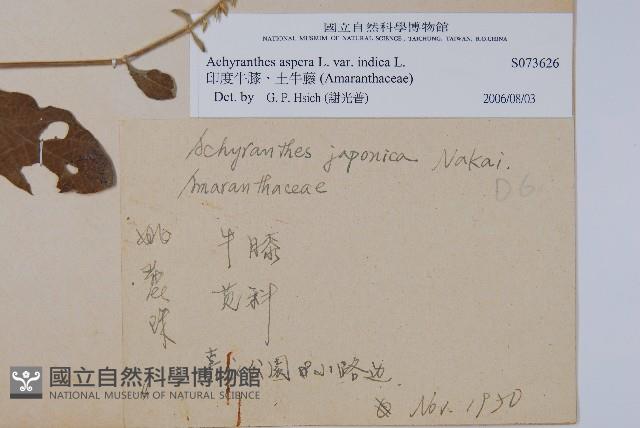 國立自然科學博物館
NATIONAL MUSEUM OF NATURAL SCIENCE, TAICHUNG, TAIWAN, R.O.CHINA
Achyranthes aspera L. var. indica L. S073626
印度牛膝、土牛藤 (Amaranthaceae)
Det. by G. P. Hsieh (謝光普) 2006/08/03
Achyranthes japonica Nakai.
Amaranthaceae
D6
牛膝
莧科
姚麗珠
公園 小路边
Nov. 1930
國立自然科學博物館
NATIONAL MUSEUM OF NATURAL SCIENCE